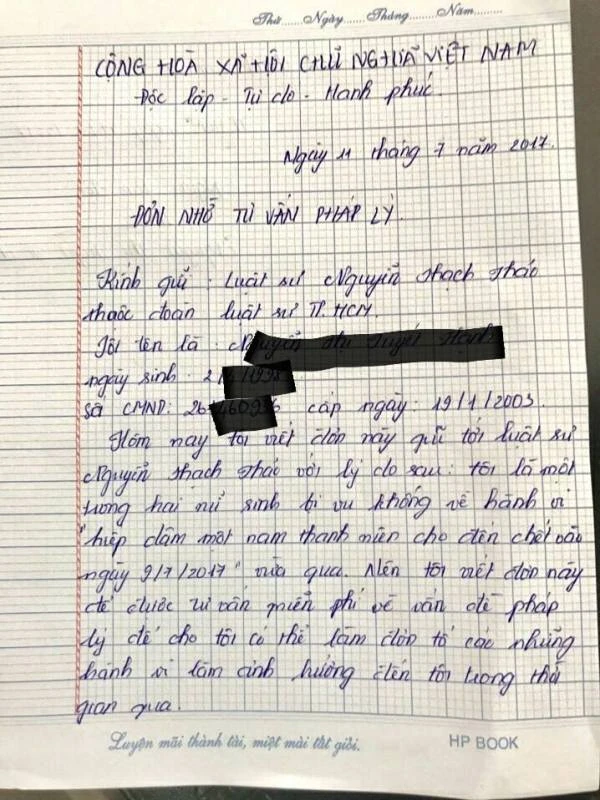 Thứ.......Ngày.......Tháng.......Năm.........
CỘNG HOÀ XÃ HỘI CHỦ NGHĨA VIỆT NAM
Độc lập - Tự do - Hạnh phúc.
Ngày 11 tháng 7 năm 2017.
ĐƠN NHỜ TƯ VẤN PHÁP LÝ.
Kính gửi : Luật sư Nguyễn Thạch Thảo
thuộc đoàn luật sư TP. HCM.
Tôi tên là :
ngày sinh :
số CMND: cấp ngày: 19/1/2003.
Hôm nay tôi viết đơn này gửi tới luật sư
Nguyễn Thạch Thảo với lý do sau: tôi là một
trong hai nữ sinh bị vu khống về hành vi
"hiếp dâm một nam thanh niên cho đến chết vào
ngày 9/7/2017" vừa qua. Nên tôi viết đơn này
để được tư vấn miễn phí về vấn đề pháp
lý để cho tôi có thể làm đơn tố cáo những
hành vi làm ảnh hưởng đến tôi trong thời
gian qua.
Luyện mãi thành tài, miệt mài tất giỏi.
HP BOOK